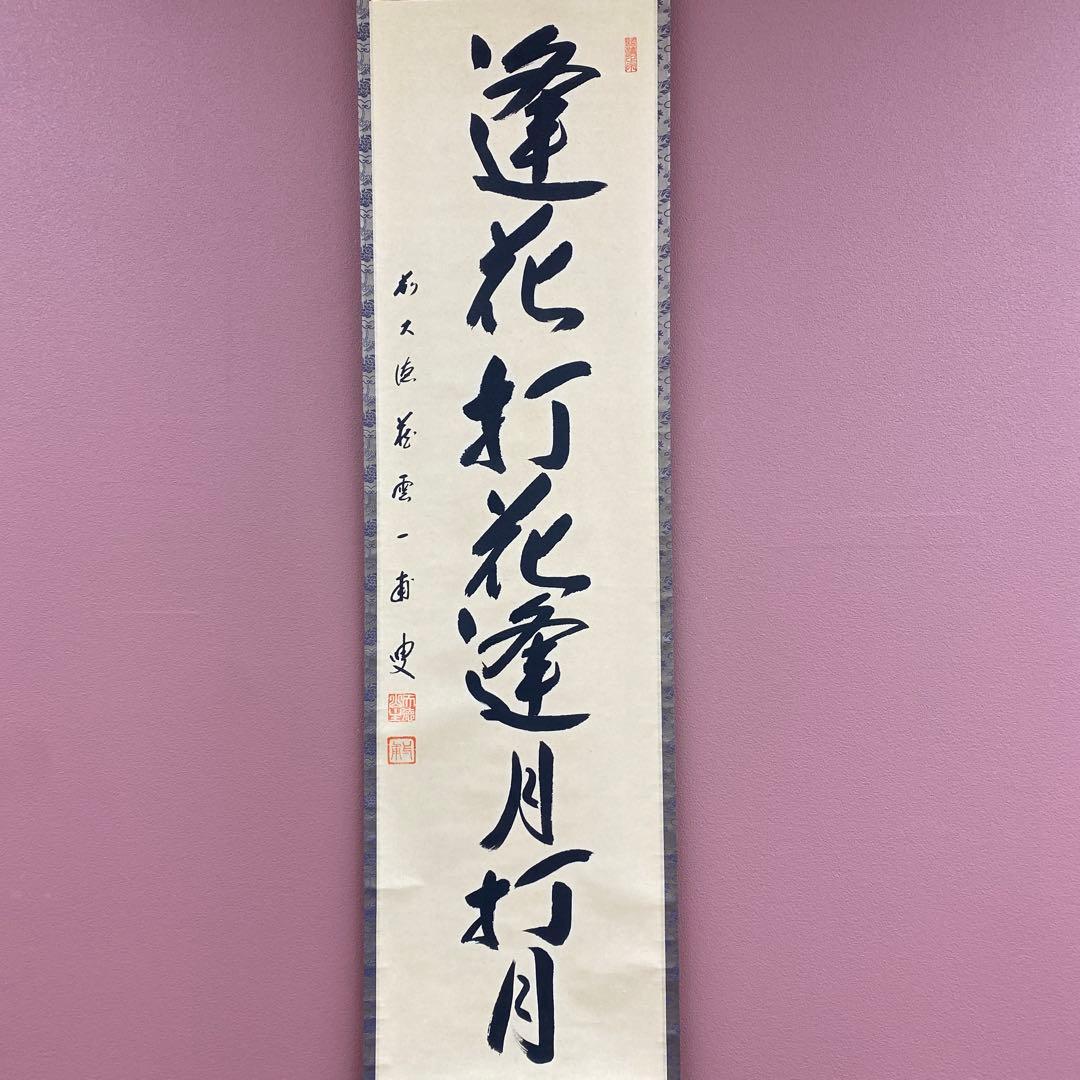 逢花打花逢月打月
前大徳藏雲一甫叟